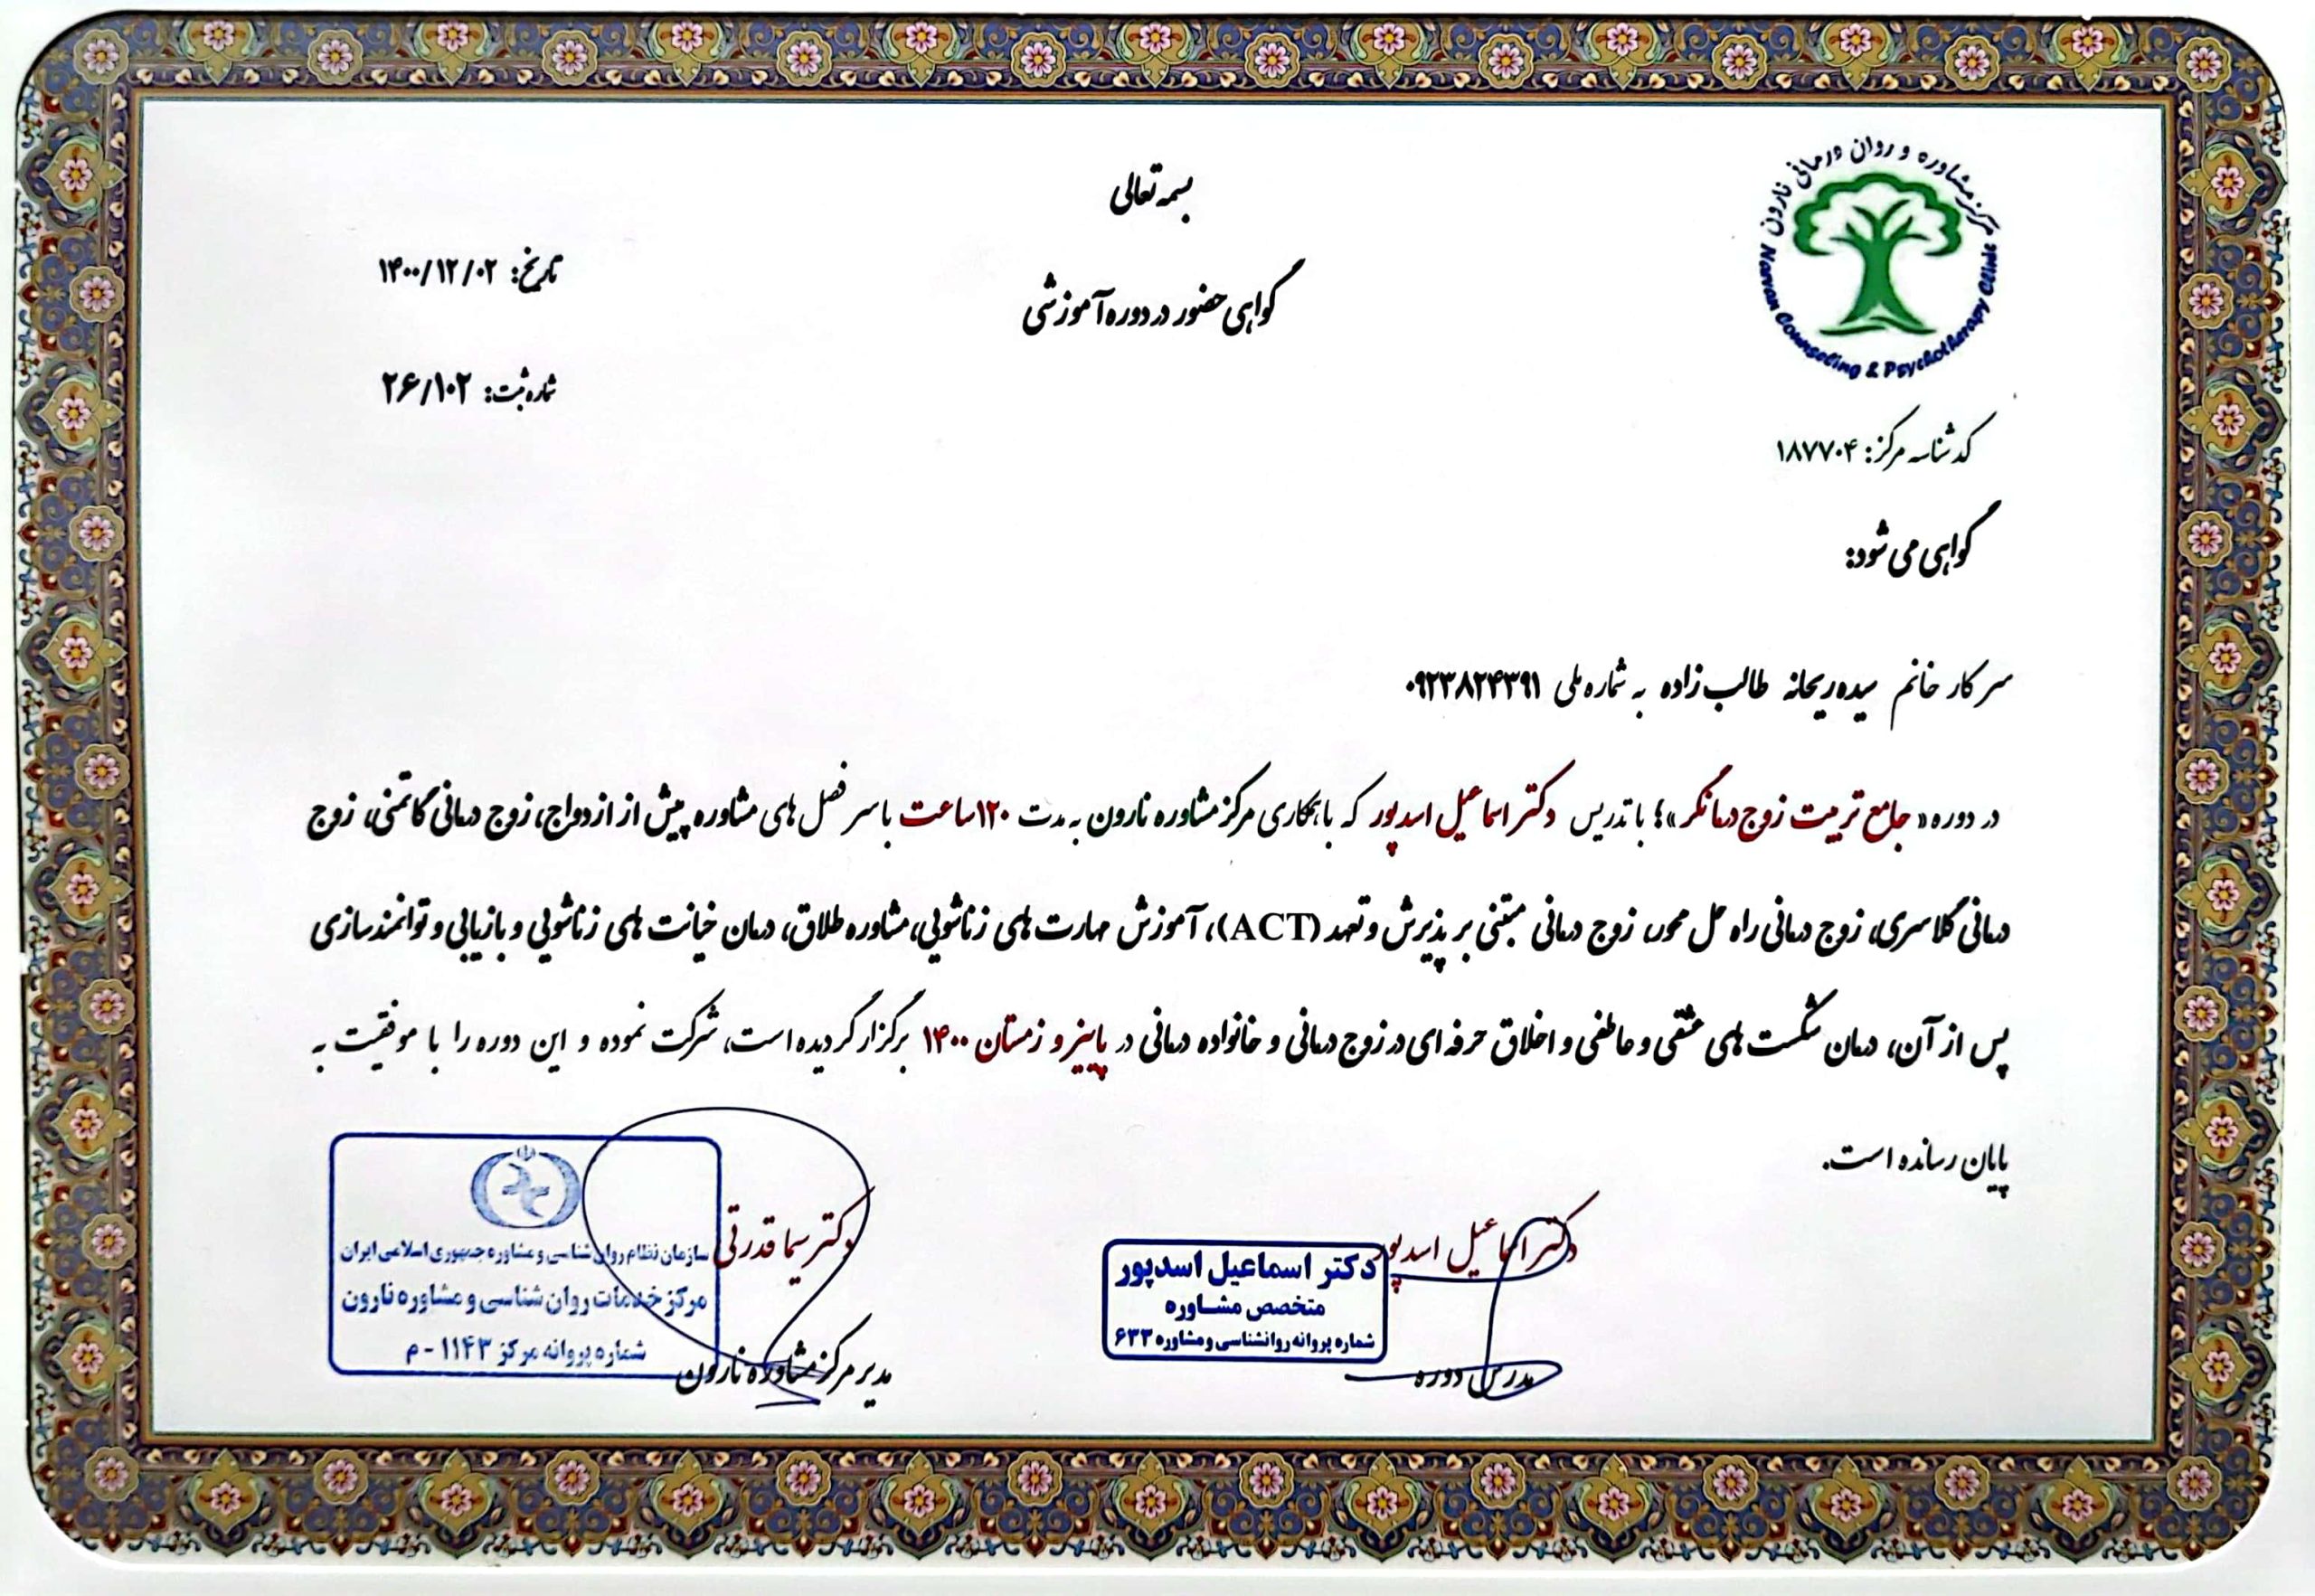 مرکز مشاوره و روان درمانی نارون
Narvan Counseling & Psychotherapy Clinic
بسمه تعالی
گواهی حضور در دوره آموزشی
تاریخ: ۱۴۰۰/۱۲/۰۲
شماره ثبت: ۲۶/۱۰۲
کد شناسه مرکز: ۱۸۷۷۰۴
گواهی می شود:
سرکار خانم سیده ریحانه طالب زاده به شماره ملی ۰۹۲۳۸۲۴۳۹۱
در دوره « جامع تربیت زوج درمانگر»؛ با تدریس دکتر اسماعیل اسدپور که با همکاری مرکز مشاوره نارون به مدت ۱۲۰ساعت با سرفصل های مشاوره پیش از ازدواج، زوج درمانی گاتمنی، زوج
درمانی گلاسری، زوج درمانی راه حل محور، زوج درمانی مبتنی بر پذیرش و تعهد (ACT)، آموزش مهارت های زناشویی، مشاوره طلاق، درمان خیانت های زناشویی و بازیابی و توانمندسازی
پس از آن، درمان شکست های عشقی و عاطفی و اخلاق حرفه ای در زوج درمانی و خانواده درمانی در پاییز و زمستان ۱۴۰۰ برگزار گردیده است، شرکت نموده و این دوره را با موفقیت به
پایان رسانده است.
دکتر اسماعیل اسدپور
مدرس دوره
دکتر اسماعیل اسدپور
متخصص مشاوره
شماره پروانه روانشناسی و مشاوره ۶۳۳
دکتر سیما قدرتی
مدیر مرکز مشاوره نارون
سازمان نظام روان شناسی و مشاوره جمهوری اسلامی ایران
مرکز خدمات روان شناسی و مشاوره نارون
شماره پروانه مرکز ۱۱۴۳ - م